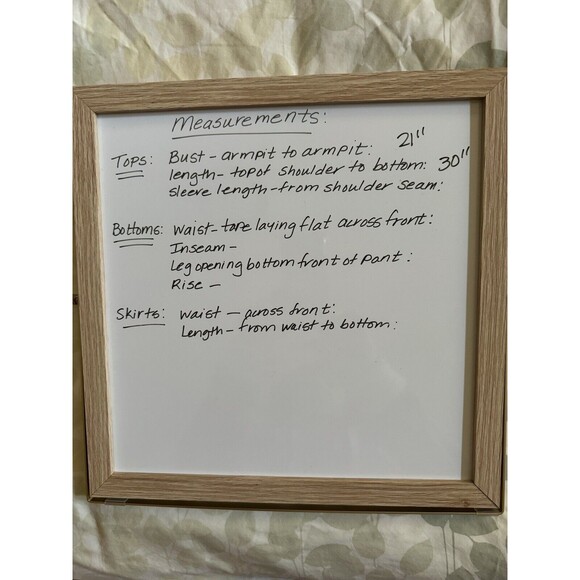 Measurements:
Tops: Bust - armpit to armpit: 21"
length - top of shoulder to bottom: 30"
sleeve length - from shoulder seam:
Bottoms: Waist - tape laying flat across front:
Inseam -
Leg opening bottom front of pant :
Rise -
Skirts: waist - across front:
Length - from waist to bottom: